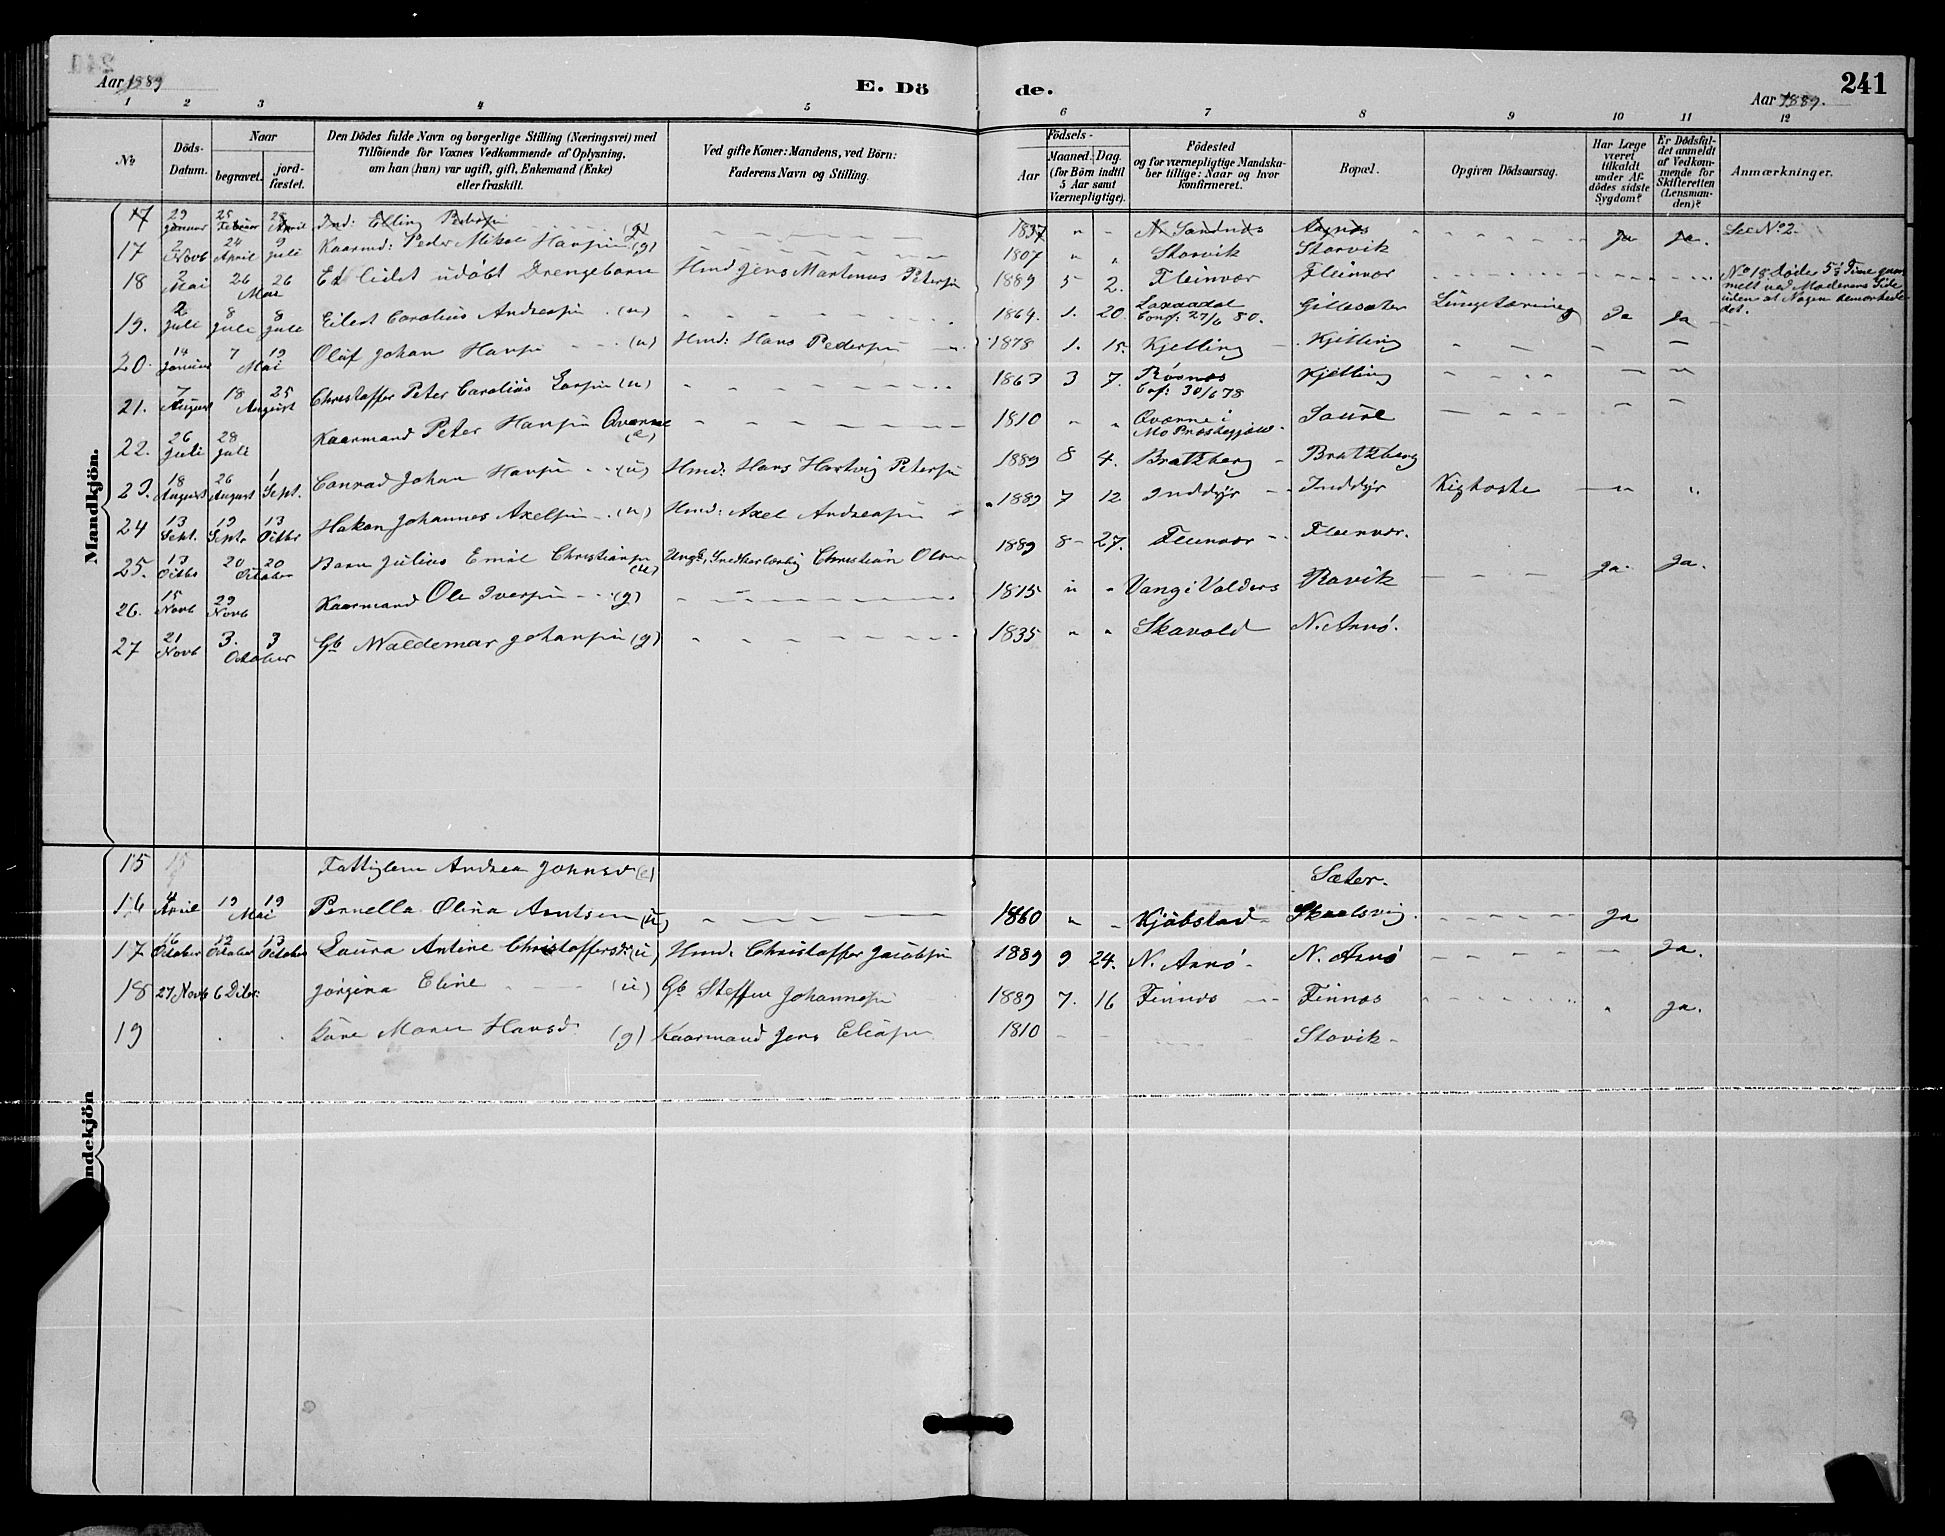 241
Aar 1889
E. Dö
de.
Aar 1889.
1 2 3 4 5 6 7 8 9 10 11 12
No
Döds-
Datum.
Naar
begravet.
jord-
fæstet.
Den Dödes fulde Navn og borgerlige Stilling (Næringsvei) med
Tilföiende for Voxnes Vedkommende af Oplysning,
om han (hun) var ugift, gift, Enkemand (Enke)
eller fraskilt.
Ved gifte Koner: Mandens, ved Börn:
Faderens Navn og Stilling.
Födsels-
Aar
Maaned.
Dag.
(for Börn indtil
5 Aar samt
Værnepligtige).
Födested
og for værnepligtige Mandska-
ber tillige: Naar og hvor
konfirmeret.
Bopæl.
Opgiven Dödsaarsag.
Har Læge
været
tilkaldt
under Af-
dödes sidste
Sygdom?
Er Dödsfal-
det anmeldt
af Vedkom-
mende for
Skifteretten
(Lensman-
den)?
Anmærkninger.
Mandkjön.
17 29 Januar 25 Februar 28 April Ind: Elling Pedersen (g) 1837 " " N. Sandnes Ja Ja. See No 2.
17 2 Novb 24 April 9 Juli Kaarmd: Peder Mikal Hansen (g) 1807 " " Storvik Storvik
18 2 Mai 26 26 Mai Et lidet udøbt Drengebarn Hmd Jens Martinus Petersen 1889 5 2. Fleinvær Fleinvær No 18 døde
19. 2 Juli 8 Juli 8 Juli Eilert Carolius Andreasen (u) 1864. 1. 20. Laxaadal Conf: 27/6 80. Gillesæter Lungetæring Ja Ja
20. 14 Januar 7 19 Mai Oluf Johan Hansen (u) Hmd: Hans Pedersen 1878 1. 15. Kjelling Kjelling
21. 7 August 18 25 August Christoffer Peter Carolius Larsen (u) 1863 3 7. Røsnes Cof: 30/6 78 Kjelling
22. 26 Juli 28 Juli Kaarmand Peter Hansen Qværne (e) 1810 " " Qværne i Mo Præstegjæld Saure
23. 18 August 26 August 1 Sept. Conrad Johan Hansen (u) Hmd: Hans Hartvig Petersen 1889 8 4. Bratzberg Bratzberg
24 13 Sept. 19 Septr 13 Octbr Hakon Johannes Axelsen (u) Hmd: Axel Andreasen 1889 7 12 Inddyr Inddyr Kighoste
25. 13 Octbr 20 20 October Barn Julius Emil Christiansen (u) Ungk, Snedkerlærling Christian Olsen 1889 8 27. Fleinvær Fleinvær.
26. 15 Novb 29 Novb Kaarmand Ole Iversen (g) 1815 " " Vang i Valders Ravik Ja. Ja.
27 21 Novb 3. 3 October Gb Waldemar Johansen (g) 1835 " " Skavold N. Arnö.
ndekjön
15 15 Fattiglem Andrea Johnsd (e) Sæter.
16 4 April 19 19 Mai Pernella Olina Arntsen (u) 1860 " " Kjöbstad Skaalsvig. Ja
17 16 October 12 October 13 October Laura Antine Christoffersd: (u) Hmd: Christoffer Jacobsen 1889 9 24. N. Arnö N. Arnö Ja.
18 27 Novb 6 Dcbr. Jørgina Eline (u) Gb Steffen Johannesen 1889 7. 16 Finnes Finnes Ja.
19 Maren Hansd: (g) Kaarmand Jens Eliasen 1810 Stovik